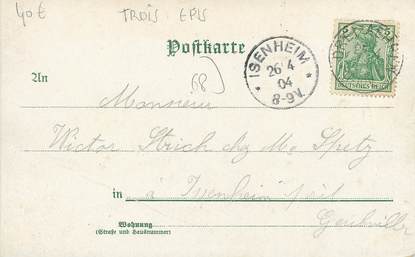 40€ TROIS EPIS
Postkarte
ISENHEIM
26/4
04
8-9V.
5 5
DEUTSCHES REICH
An
68)
Monsieur
Victor Strich chez Mr Spetz
in à Isenheim
Wohnung
(Straße und Hausnummer)